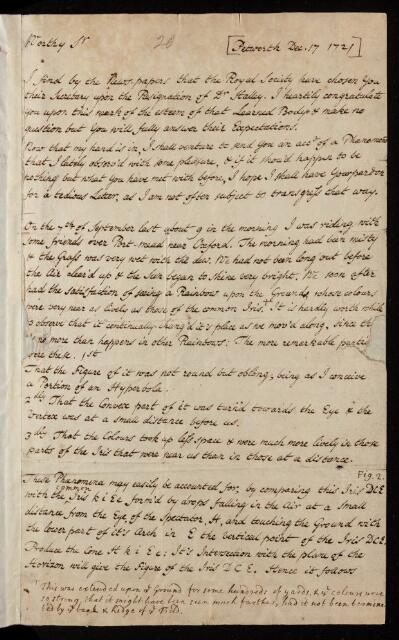 Worthy Sr
28
[Petworth Dec. 17 1721]
I find by the News-papers that the Royal Society have chosen You
their Secretary upon the Resignation of Dr Halley. I heartily congratulate
you upon this mark of the esteem of that Learned Body & make no
question but You will fully answer their Expectations.
Now that my hand is in, I shall venture to send You an acct of a Phænomenon
that I lately observ'd with some pleasure, & if it should happen to be
nothing but what you have met with before, I hope I shall have Your pardon
for a tedious Letter, as I am not often subject to transgress that way.
On the 7th of September last about 9 in the morning I was riding with
some friends over Port-mead near Oxford. The morning had been misty
& the Grass was very wet with the dew. We had not been long out before
the Air clear'd up & the Sun began to shine very bright. We soon after
had the satisfaction of seeing a Rainbow upon the Ground, whose colours
were very near as lively as those of the common Iris. It is hardly worth while
to observe that it continually chang'd it's place as we mov'd along, since th
no more than happens in other Rainbows: The more remarkable parti
were these. 1st
That the Figure of it was not round but oblong, being as I conceive
a Portion of an Hyperbola.
2dly That the Convex part of it was turn'd towards the Eye & the
Vertex was at a small distance before us.
3dly That the Colours took up less space & were much more lively in those
parts of the Iris that were near us than in those at a distance.
Fig. 2.
These Phænomena may easily be accounted for, by comparing this Iris DCE
with the common Iris k i E e form'd by drops falling in the Air at a small
distance from the Eye of the Spectator, A, and touching the Ground with
the lower part of it's Arch in E the vertical point of the Iris DCE.
Produce the Cone A k i E e: It's Intersection with the plane of the
Horizon will give the Figure of the Iris D C E. Hence it follows
This was extended upon ye Ground for some hundreds of yards, & ye colours were
so strong, that it might have been seen much farther, had it not been
by ye bank & Hedge of ye Field.